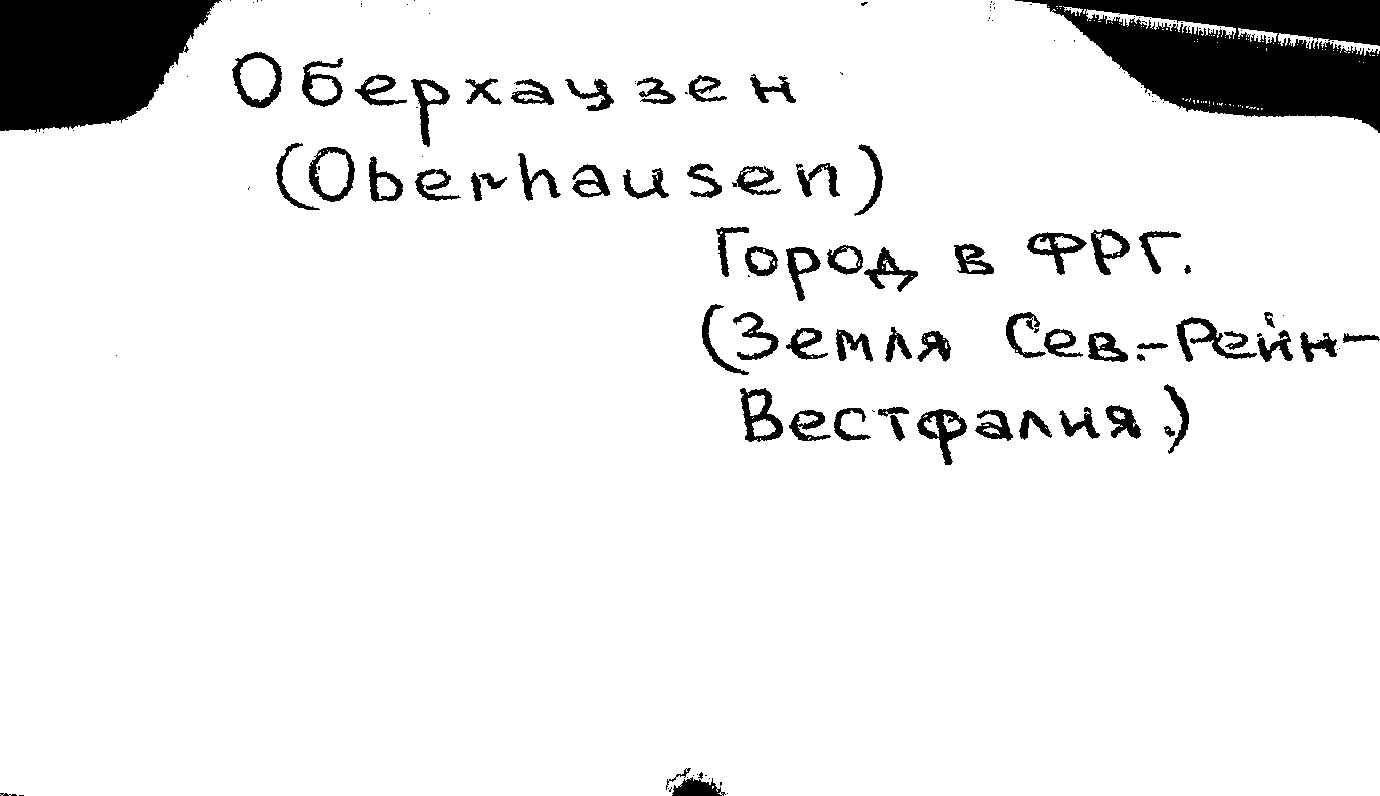 Оберхаузен
(Oberhausen)
Город в ФРГ.
(Земля Сев.-Рейн-
Вестфалия.)